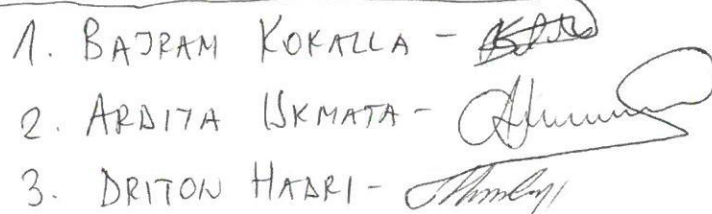 1. BAJRAM KOKALLA -
2. ARDITA UKMATA -
3. DRITON HADRI -